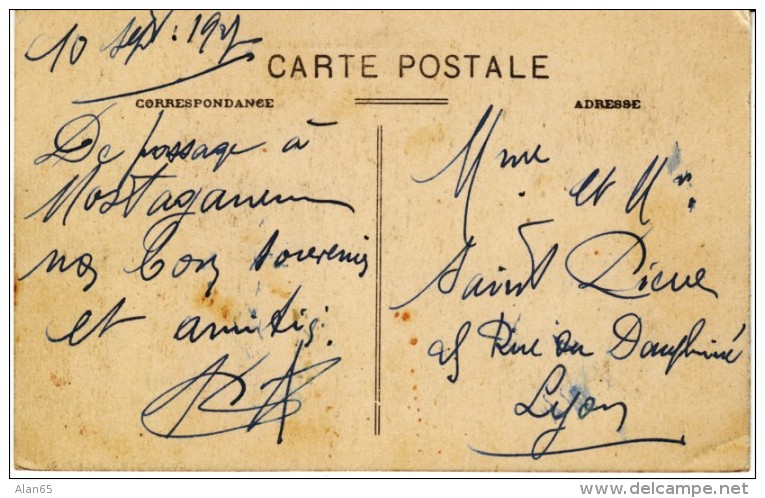 10 Sept: 19
CARTE POSTALE
CORRESPONDANCE
De passage à
Mostaganem
nos bons souvenirs
et amitiés.
ADRESSE
Mme et Mr.
Saint Pierre
Rue du Dauphiné
Lyon
Alan65
delcampe.net